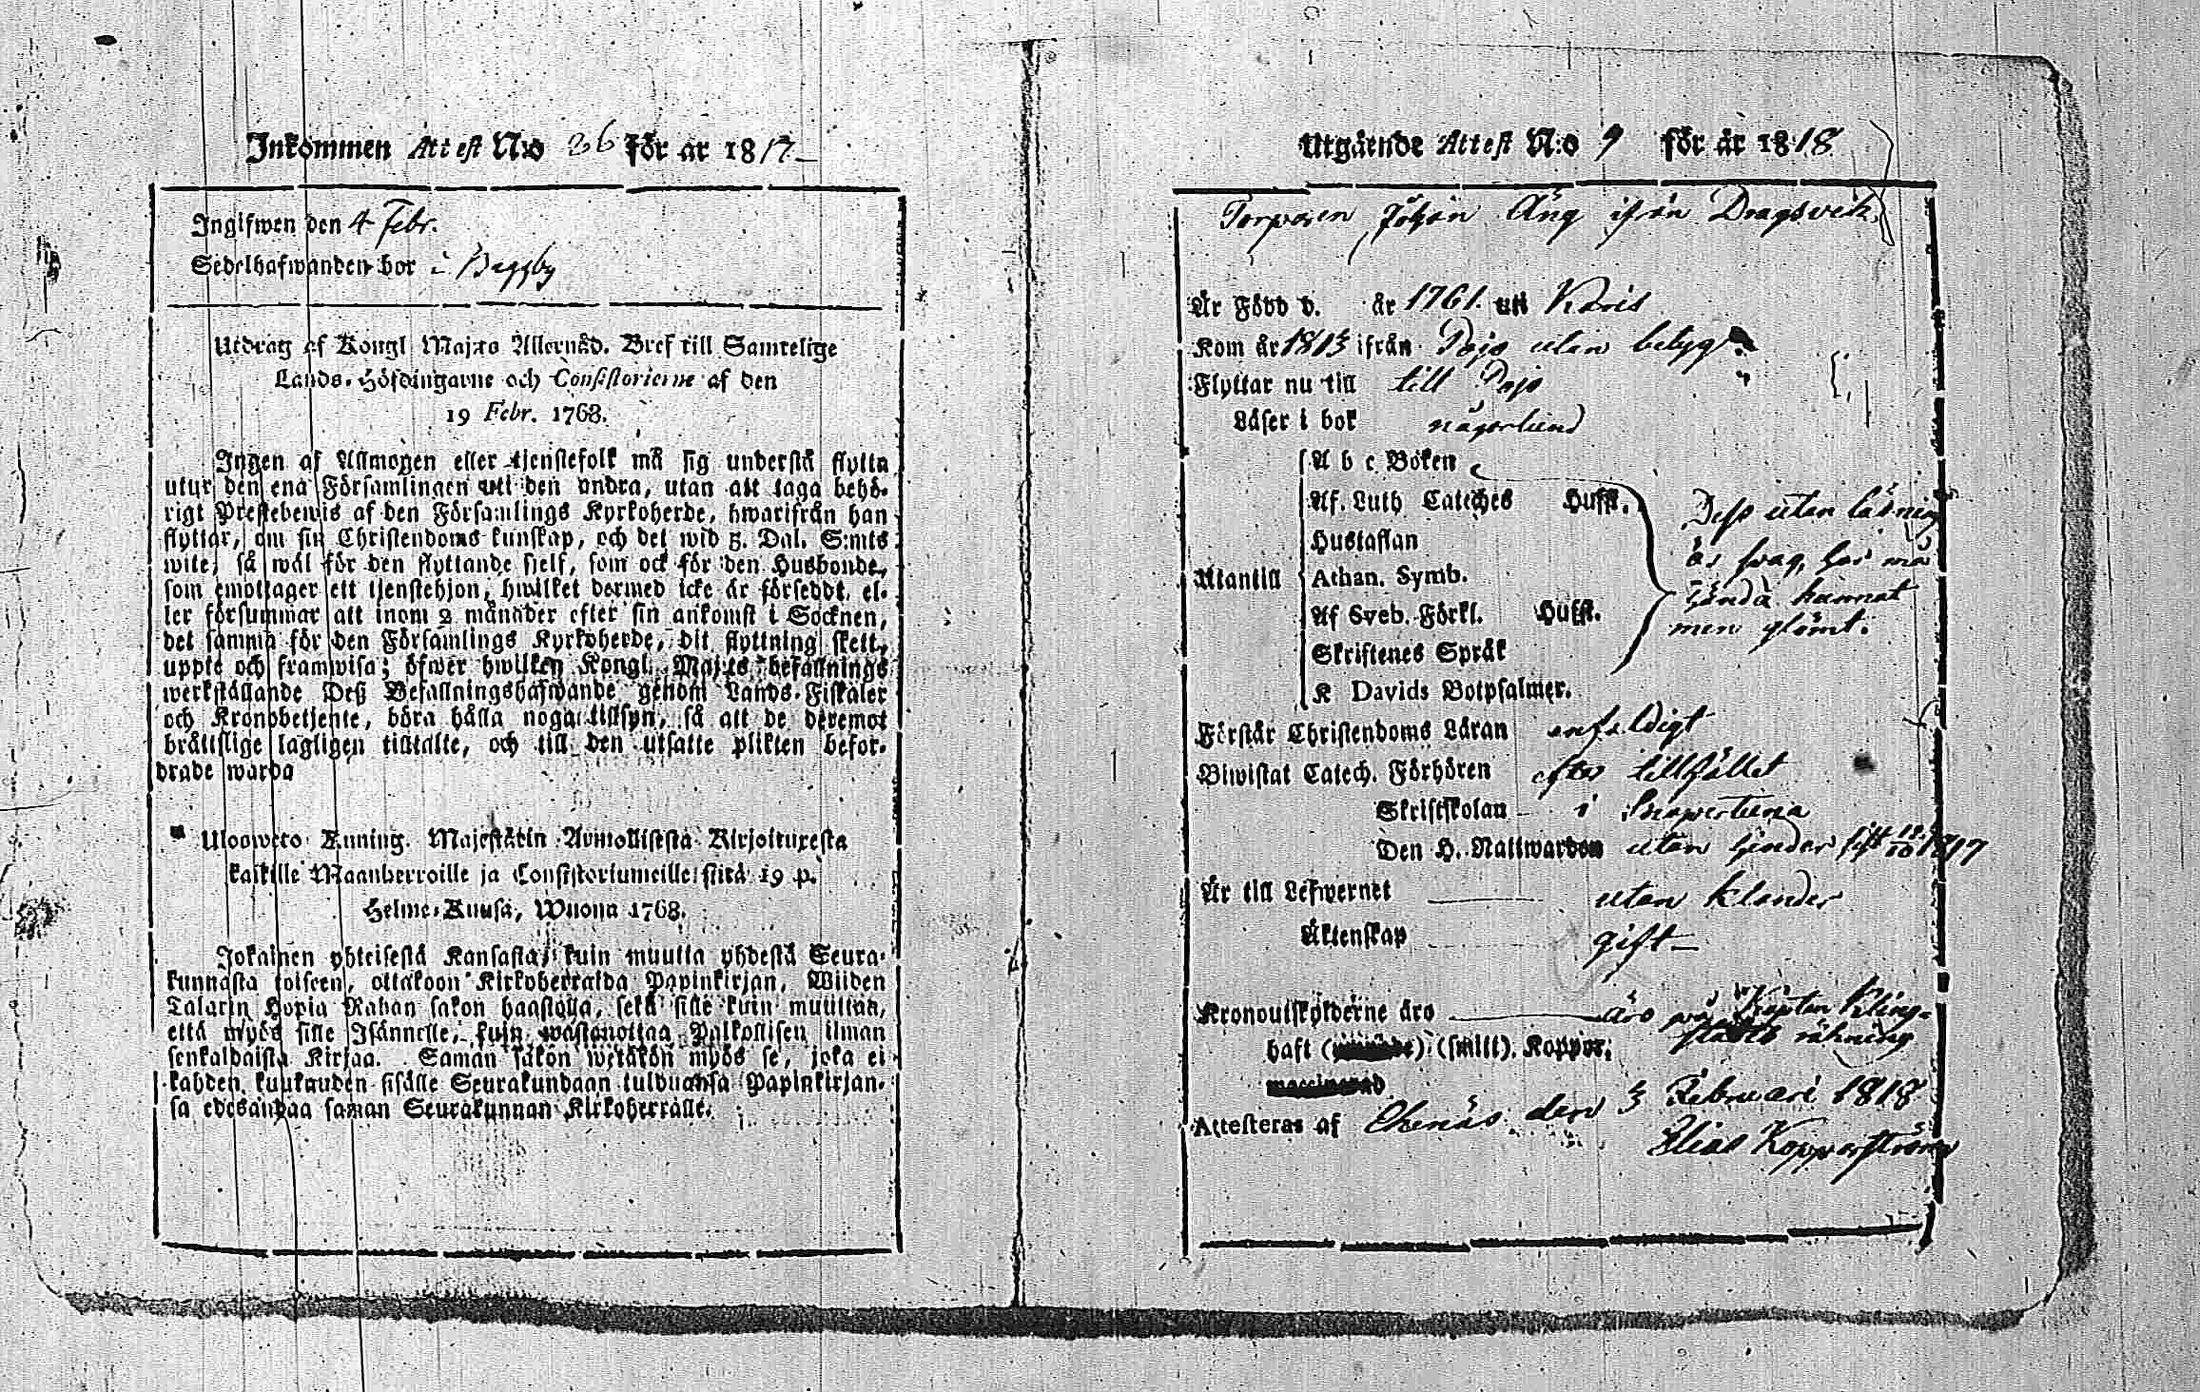 Inkommen Attest N:o 26 för år 1817
Ingifwen den 4 Febr.
Sedelhafwanden bor i Baggby
Utdrag af Kongl Maj:ts Allernåd. Bref till Samtelige
Lands-Höfdingarne och Consistorierne af den
19 Febr. 1768.
Ingen af Allmogen eller tjenstefolk må sig understå flytta
utur den ena Församlingen uti den andra, utan att taga behö-
rigt Prestebewis af den Församlings Kyrkoherde, hwarifrån han
flyttar, om sin Christendoms kunskap, och det wid 5. Dal. S:mts
wite, så wäl för den flyttande sjelf, som ock för den Husbonde,
som emottager ett tjenstehjon, hwilket dermed icke är försedt, el-
ler försummar att inom 2 månader efter sin ankomst i Socknen,
det samma för den Församlings Kyrkoherde, dit flyttning skett,
uppte och framwisa; öfwer hwilken Kongl. Maj:ts befallnings
werkställande Deß Befallningshafwande genom Lands-Fiskaler
och Kronobetjente, böra hålla noga tillsyn, så att de deremot
bråttslige lagligen tilltalte, och till den utsatte plikten befor-
drade warda
Ulosweto Kuning. Majestätin Armollisesta Kirjoituxesta
kaikille Maanherroille ja Consistoriumeille siitä 19 p.
Helme-Kuusa, Wuonna 1768.
Jokainen yhteisestä Kansasta, kuin muutta yhdestä Seura-
kunnasta toiseen, ottakoon Kirkoherralda Papinkirjan, Wiiden
Talarin Hopia Rahan sakon haastolla, sekä sille kuin muuttaa,
että myös sille Isännelle, kuin wastanottaa Palkollisen ilman
senkaldaista Kirjaa. Saman sakon wetäkön myös se, joka ei
kahden kuukauden sisälle Seurakundaan tulduansa Papinkirjan-
sa edesanna saman Seurakunnan Kirkoherralle.
Utgående Attest N:o 9 för år 1818
Torparen Johan Äng ifrån Dragsvik
Är Född d. år 1761 uti Karis
Kom år 1813 ifrån Pojo utan betyg
Flyttar nu till till Pojo
Läser i bok någorlund
A b c Boken
Af. Luth Cateches Hufst.
Hustaflan
Utantill Athan. Symb.
Af Sveb. Förkl. Hufst.
Skriftenes Språk
K Davids Botpsalmer.
Dess utan läsning
är swag, har må
hända kunnat
men glömt.
Förstår Christendoms Läran enfaldigt
Biwistat Catech. Förhören efter tillfället
Skriftskolan i Snapertuna
Den H. Nattwarden utan hinder sist 1817
Är till Lefwernet utan klander
Äktenskap gift
Kronoutskylderne äro äro på Kapten Kling-
stedts räkning
haft (smitt). Koppor;
Attesteras af Ekenäs den 3 Februari 1818
Elias Kopperström